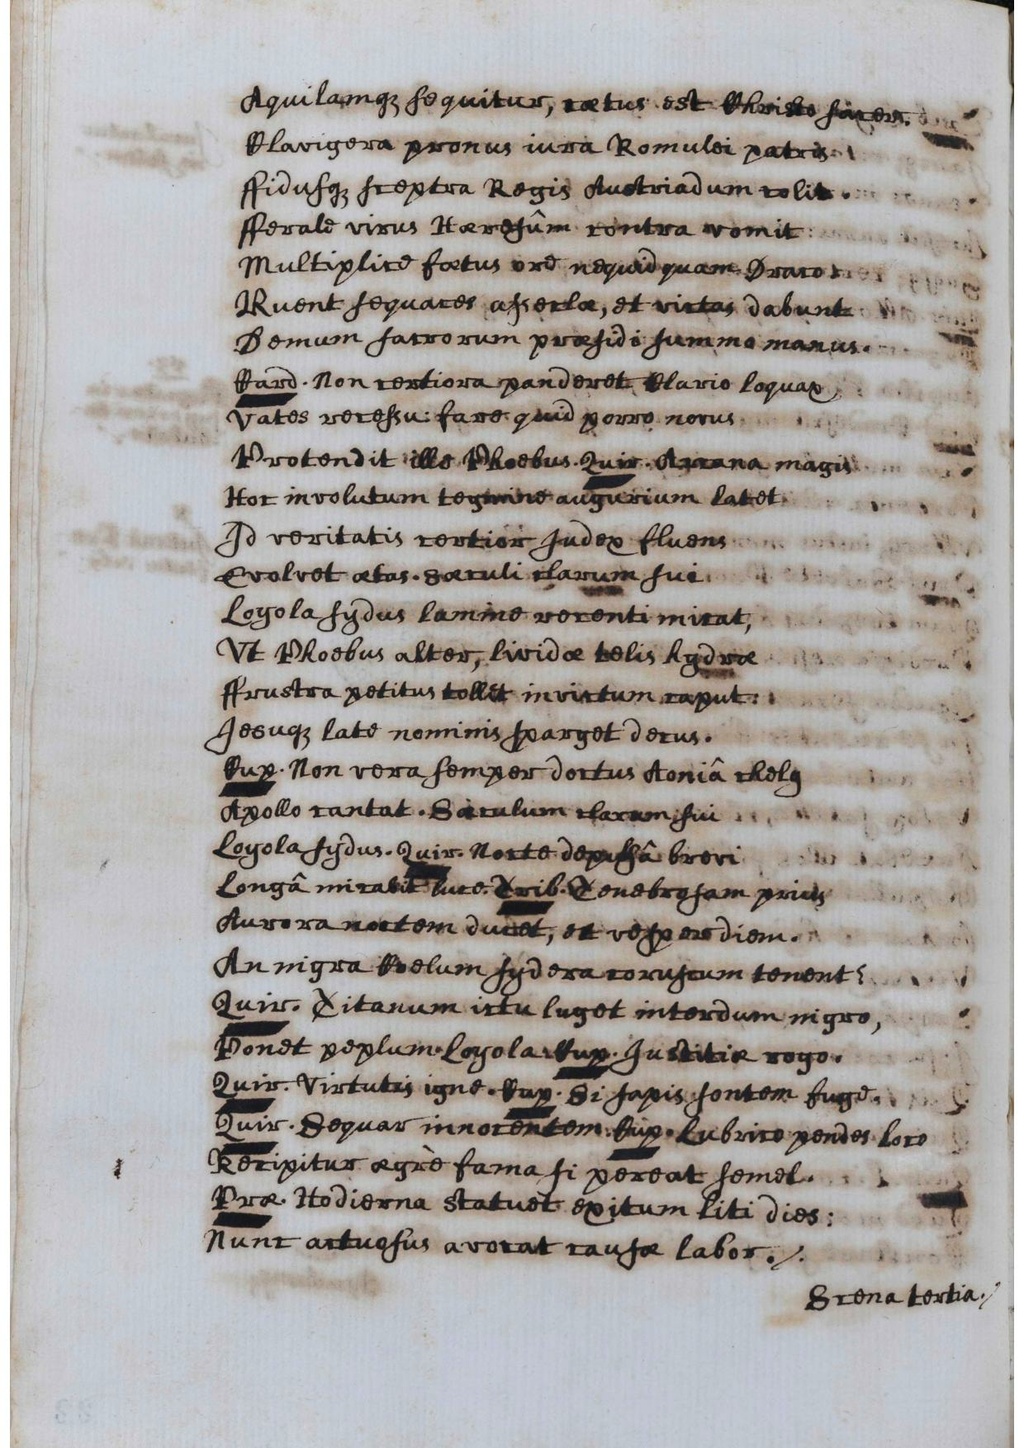 Aquilamq; sequitur, cœtus est Christo sacer.
Clavigera pronus iura Romulei patris
ffidusq; sceptra Regis Austriadum colit.
fferale virus Hæresûm contra vomit
Multiplice fœtus ore nequidquam Draco
Ruent sequaces asseclæ, et victas dabunt
Demum sacrorum præsidi summo manus.
Card. Non certiora panderet Clario loquax
Vates recessu: fare quid porro novus
Protendit ille Phoebus. Quir. Arcana magis
Hoc involutum tegmine augurium latet
Id veritatis certior Judex fluens
Evolvet ætas. Sæculi clarum sui
Loyola sydus lumine recenti micat,
Vt Phoebus alter, lividæ telis hydræ
ffrustra petitus tollet invictum caput:
Jesuq; late nominis sparget decus.
Cup. Non vera semper doctus Aoniâ chely
Apollo cantat. Sæculum clarum sui
Loyola sydus. Quir. Nocte depulsâ brevi
Longâ micabit luce. Trib. Tenebrosam prius
Aurora noctem ducet, et vesper diem.
An nigra Coelum sydera coruscum tenent?
Quir. Titanum ictu luget interdum nigro,
Ponet peplum Loyola. Cup. Justitiæ rogo.
Quir. Virtutis igne. Cup. Si sapis sontem fuge.
Quir. Sequar innocentem. Cup. Lubrico pendes loco
Recipitur ægrè fama si pereat semel.
Præ. Hodierna statuet exitum liti dies:
Nunc actuosus avocat causæ labor./.
Scena tertia./